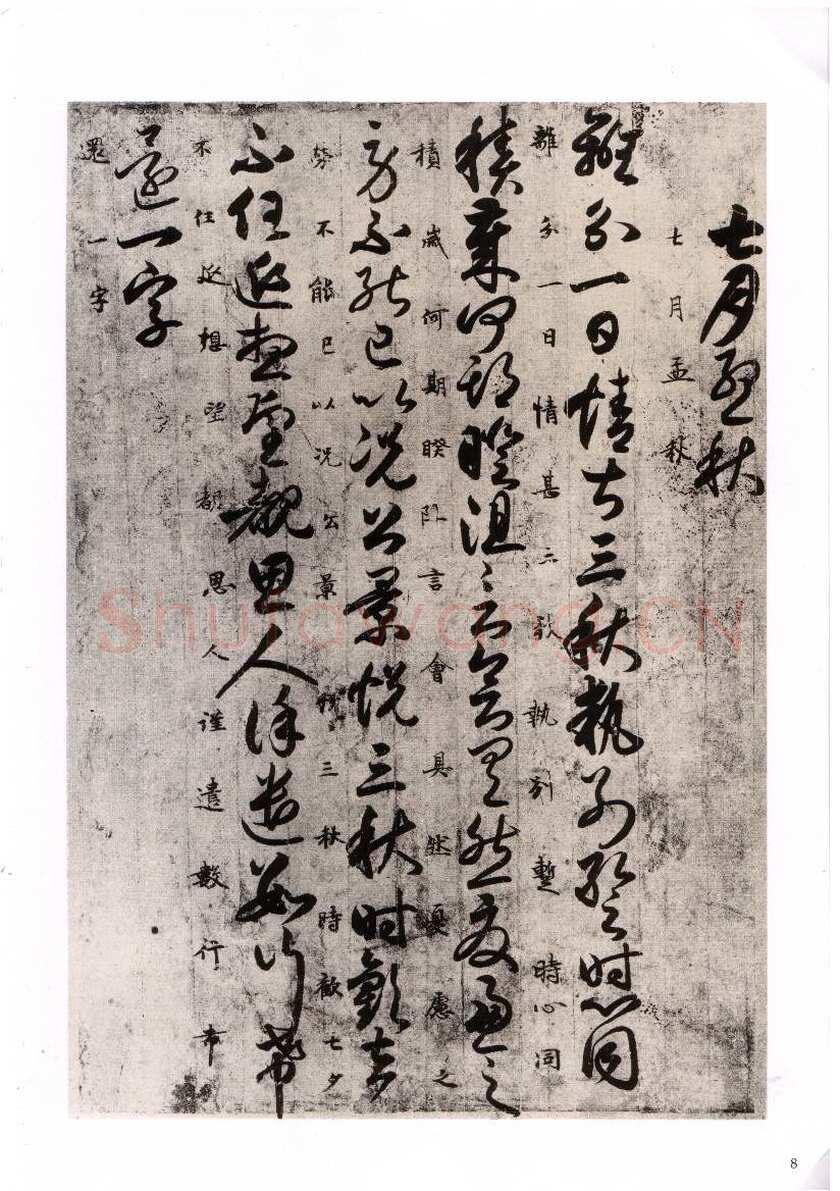 七月孟秋
七月孟秋
離分一日情甚三秋執別暫時心同
離分一日情甚三秋執別蹔時心同
積歲何期暌阻言會具然憂慮之
積歲何期暌阻言會具然憂慮之
勞不能已以況公景悅三秋時歡七夕
勞不能已以况公景悅三秋時歡七夕
不任延想望覩思人謹遣數行希
不任延想望覩思人謹遣數行希
還一字
還一字
Shufawang.CN
8